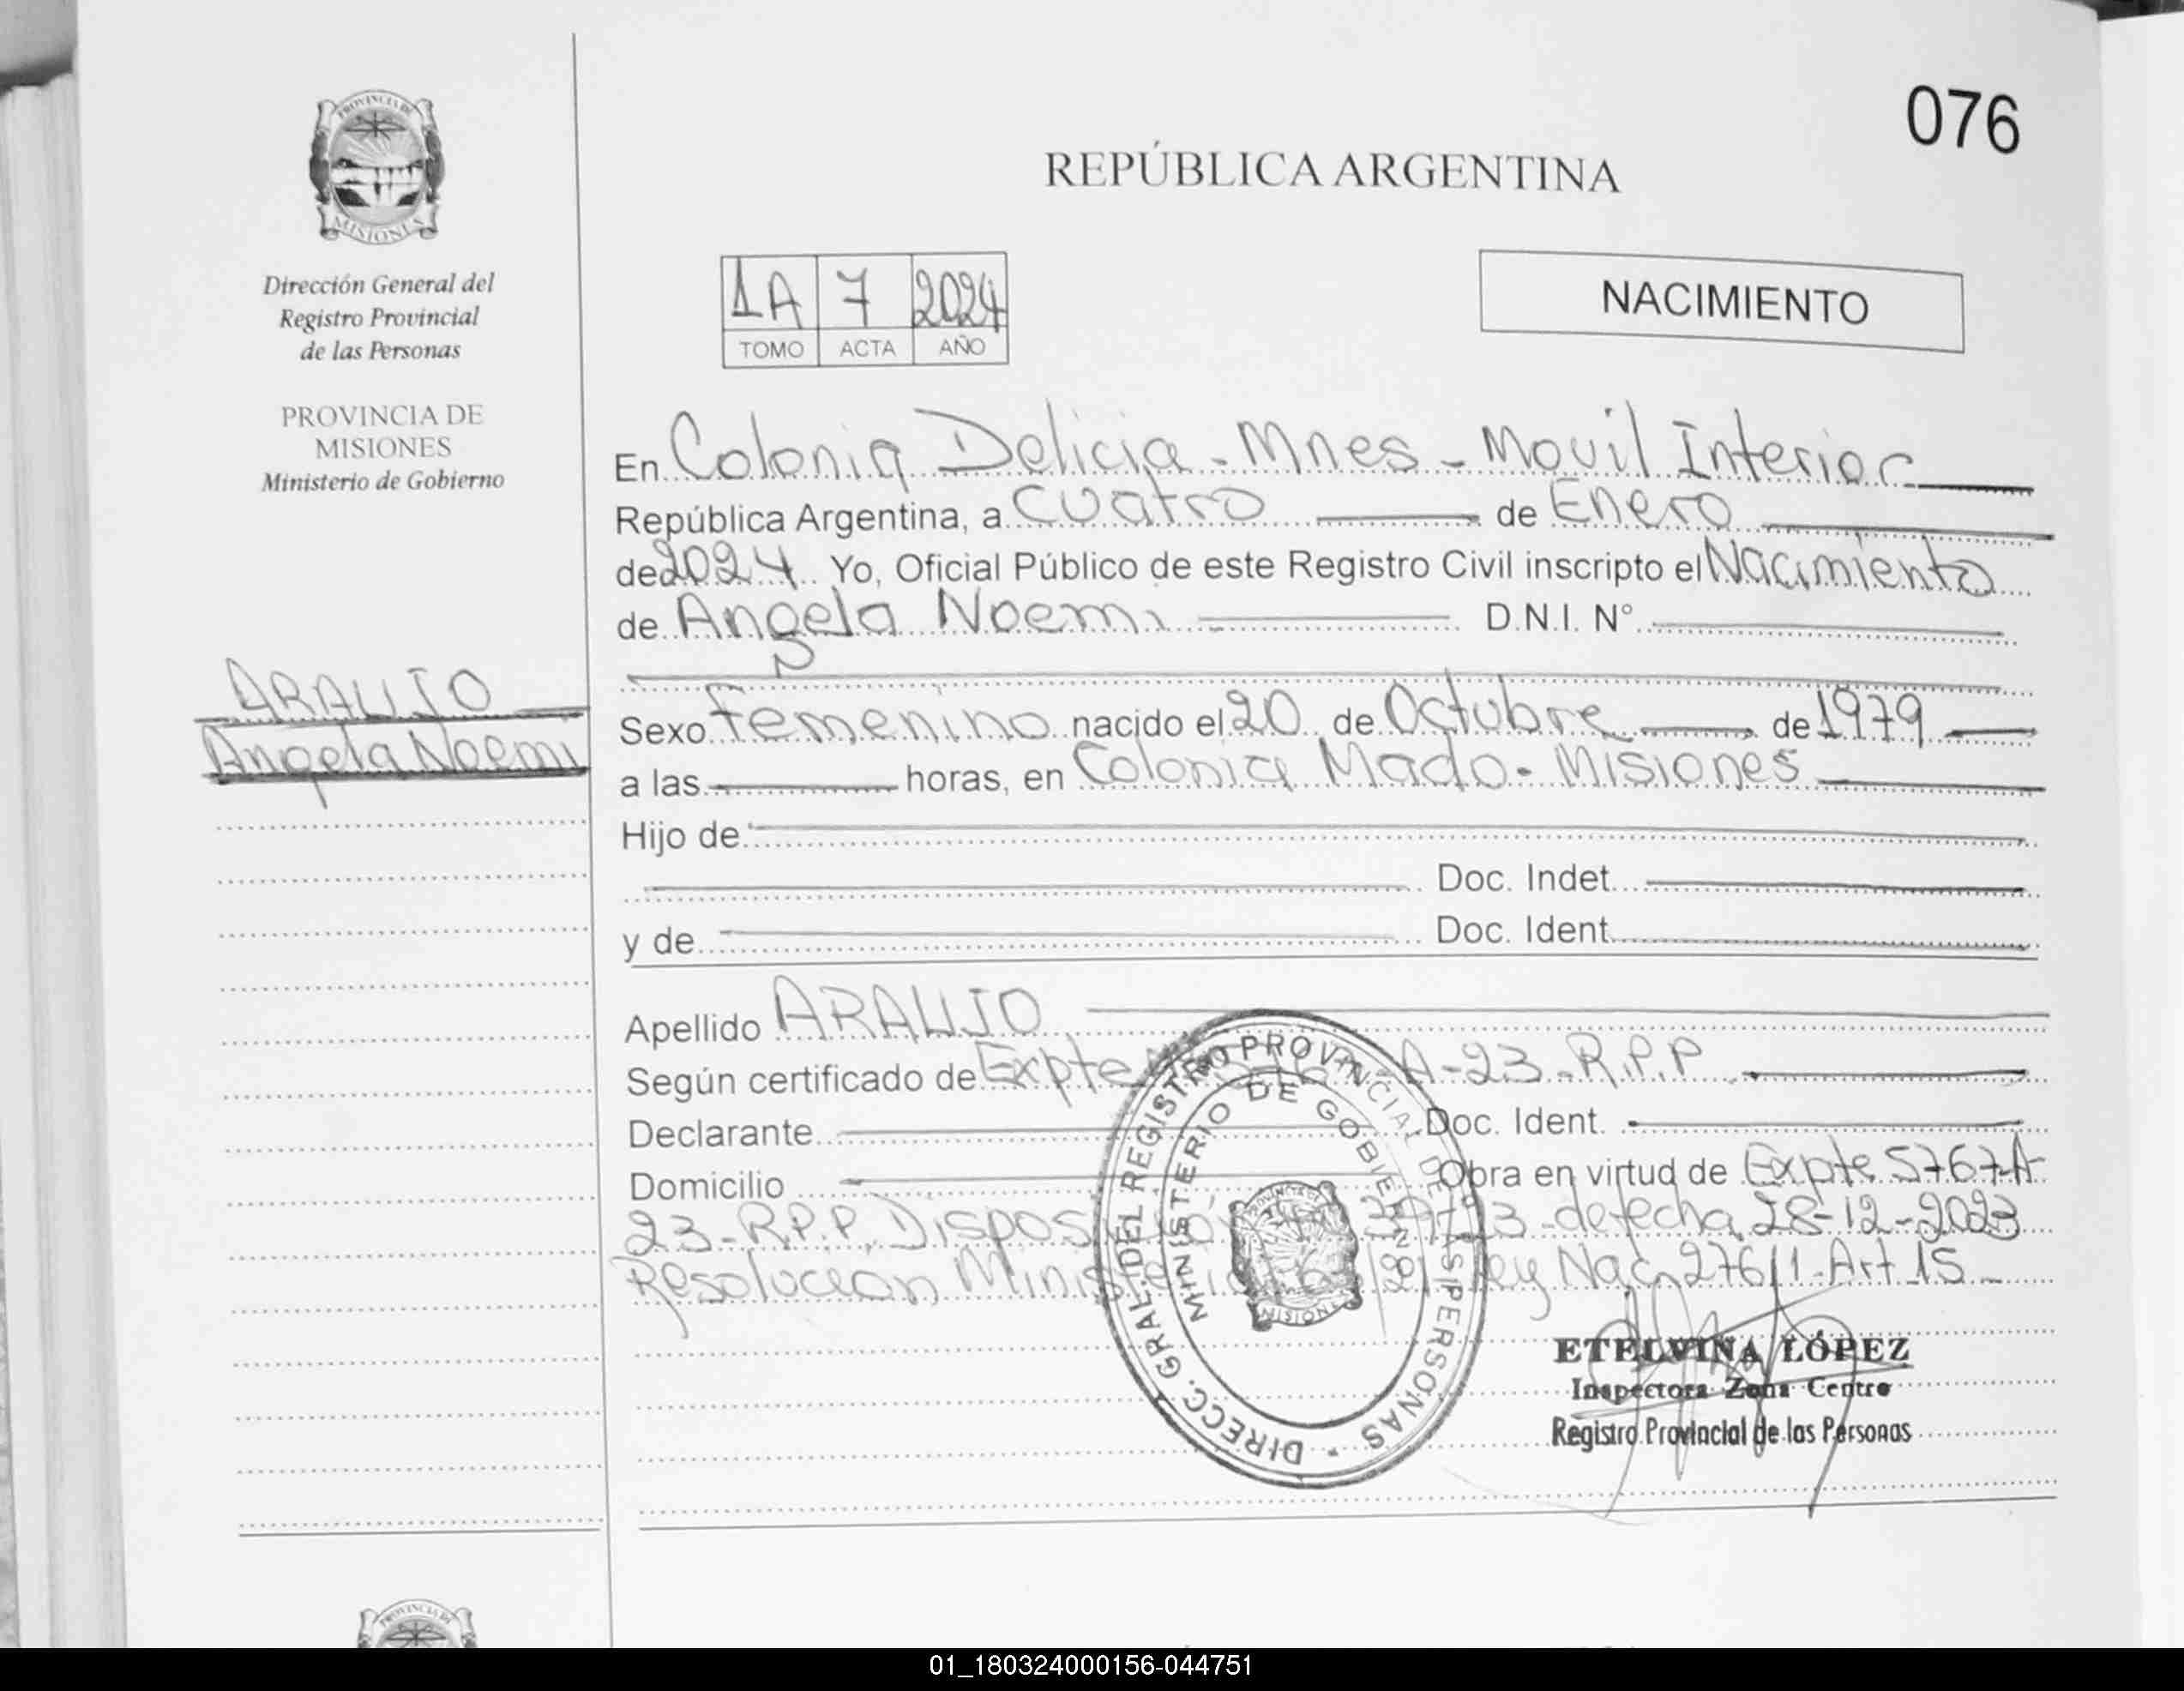 076
PROVINCIA DE
MISIONES
REPÚBLICA ARGENTINA
Dirección General del
Registro Provincial
de las Personas
PROVINCIA DE
MISIONES
Ministerio de Gobierno
1A 7 2024
TOMO ACTA AÑO
NACIMIENTO
En Colonia Delicia - Mnes - Movil Interior
República Argentina, a Cuatro de Enero
de 2024 Yo, Oficial Público de este Registro Civil inscripto el Nacimiento
de Angela Noemi D.N.I. N°
ARAUJO
Angela Noemi
Sexo Femenino nacido el 20 de Octubre de 1979
a las horas, en Colonia Mado - Misiones
Hijo de
Doc. Indet.
y de Doc. Ident.
Apellido ARAUJO
Según certificado de Expte A-23-R.P.P
Declarante Doc. Ident.
Domicilio Obra en virtud de Expte 5767-A-
23-R.P.P, Disposición de fecha 28-12-2023
Resolucion Ley Nac. 27611-Art 15
DIRECC. GRAL. DEL REGISTRO PROVINCIAL DE LAS PERSONAS
MINISTERIO DE GOBIERNO
MISIONES
ETELVINA LÓPEZ
Inspectora Zona Centro
Registro Provincial de las Personas
PROVINCIA DE
01_180324000156-044751